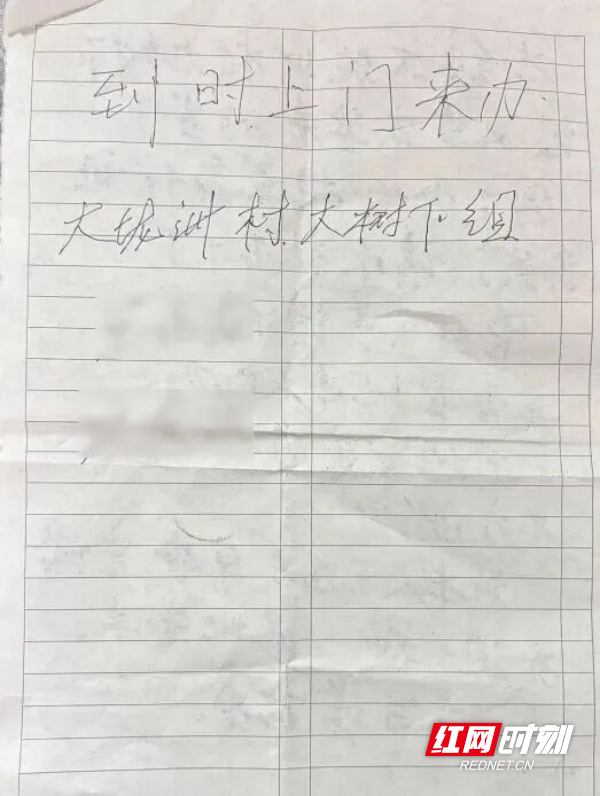 到时上门来办.
大垅洲村大树下组
红网时刻
REDNET.CN